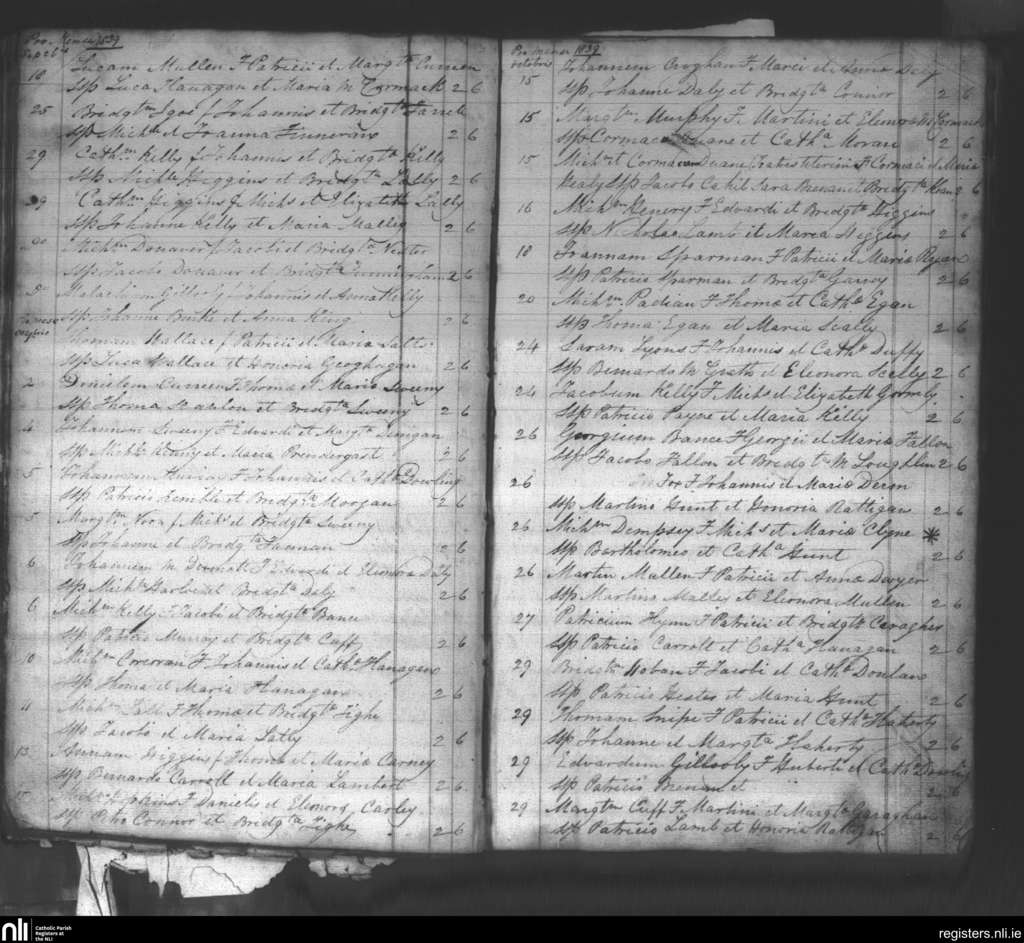 Pro. Mense 1839
Septbris
18 Lucam Mullen F Patricii et Margta Curreen
Ssp Luca Flanagan et Maria Mc Cormack 2 6
25 Bridgtm Igoe f Johannis et Bridgta Farrell
Ssp Michle et Joanna Finnerans 2 6
29 Cathm Kelly f Johannis et Bridgta Kelly
Ssp Michle Higgins et Bridgta Lally 2 6
29 Cathm Higgins f Michs et Elizabeth Lally
Ssp Johanne Kelly et Maria Malley 2 6
Michm Donaver f Jacobi et Bridgta
Ssp Jacobo Donaver et Bridgta Cunningham 2 6
Malachium Gillooly f Johannis et Anna Kelly
Ssp Johanne Burke et Anna King 2 6
Thomam Wallace f Patricii et Maria
Ssp Luca Wallace et Honoria Geoghegan 2 6
2 Danielem Curreen F Thoma et Maria Sweeny
Ssp Thoma Scanlon et Bridgta Sweeny 2 6
4 Johannem Sweeny F Edvardi et Margta
Ssp Michle Kenny et Maria Prendergast 2 6
5 Johannem Murray F Johannis et Catha Dowling
Ssp Patricio et Bridgta Morgan 2 6
5 Margtm Noon f Michs et Bridgta Sweeny
Ssp Johanne et Bridgta Hannan 2 6
6 Johannem Mc Dermott F Edvardi et Eleonora Daly
Ssp Michle et Bridgta Daly 2 6
6 Michm Kelly F Jacobi et Bridgta Bance
Ssp Patricio Murray et Bridgta Cuff 2 6
10 Michm Corcoran F Johannis et Catha Flanagans
Ssp Thoma et Maria Flanagans 2 6
11 Michm Lally F Thoma et Bridgta Tighe
Ssp Jacobo et Maria Lally 2 6
13 Annam Higgins f Thoma et Maria Carney
Ssp Bernardo Carroll et Maria Lambert 2 6
Hopkins F Danielis et Elenora Carley
Ssp Connor et Bridgta Tighe 2 6
Pro mense 1839
octobris
15 Johannem Croghan F Marci et Anna Daly
Ssp Johanne Daly et Bridgta Connor 2 6
15 Margtm Murphy F. Martini et Elenora McCormack
Ssp Cormac Duane et Catha Moran 2 6
15 Michm et Cormacum Duane F Cormaci et Maria
Healy Ssp Jacobo Cahil Sara Brenan et Bridgta 2 6
16 Michm Henery F Edvardi et Bridgta Higgins
Ssp Nicholao Lamb et Maria Higgins 2 6
18 Joannam Sparman F Patricii et Maria Ryan
Ssp Patricio Sparman et Bridgta Garvy 2 6
20 Michm Padean F Thoma et Catha Egan
Ssp Thoma Egan et Maria Scally 2 6
24 Saram Lyons F Johannis et Catha Duffy
Ssp Bernardo Mc Grath et Eleonora Scelly 2 6
24 Jacobum Kelly F Michs et Elizabeth Gormly
Ssp Patricio Payne et Maria Kelly 2 6
26 Georgium Bance F Georgii et Maria Fallon
Ssp Jacobo Fallon et Bridgta Mc Loughlin 2 6
26 Fox F Johannis et Maria
Ssp Martino Hunt et Honoria Rattigan 2 6
26 Michm Dempsey F Michs et Maria Clyne *
Ssp Bartholomeo et Catha Hunt 2 6
26 Martin Mullen F Patricii et Anna Dwyer
Ssp Martino Malley et Eleonora Mullen 2 6
27 Patricium Flynn F Patricii et Bridgta
Ssp Patricio Carroll et Catha Flanagan 2 6
29 Bridgtm Hoban F Jacobi et Catha Donlans
Ssp Patricio Hester et Maria Hunt 2 6
29 Thomam Snipe F Patricii et Catha Flaherty
Ssp Johanne et Margta Flaherty 2 6
29 Edvardum Gillooly F Huberti et Catha
Ssp Patricio Brenan et 2 6
29 Margtm Cuff F. Martini et Margta Garaghan
Ssp Patricio Lamb et Honoria Rattigan 2 6
nli Catholic Parish
Registers at
the NLI
registers.nli.ie